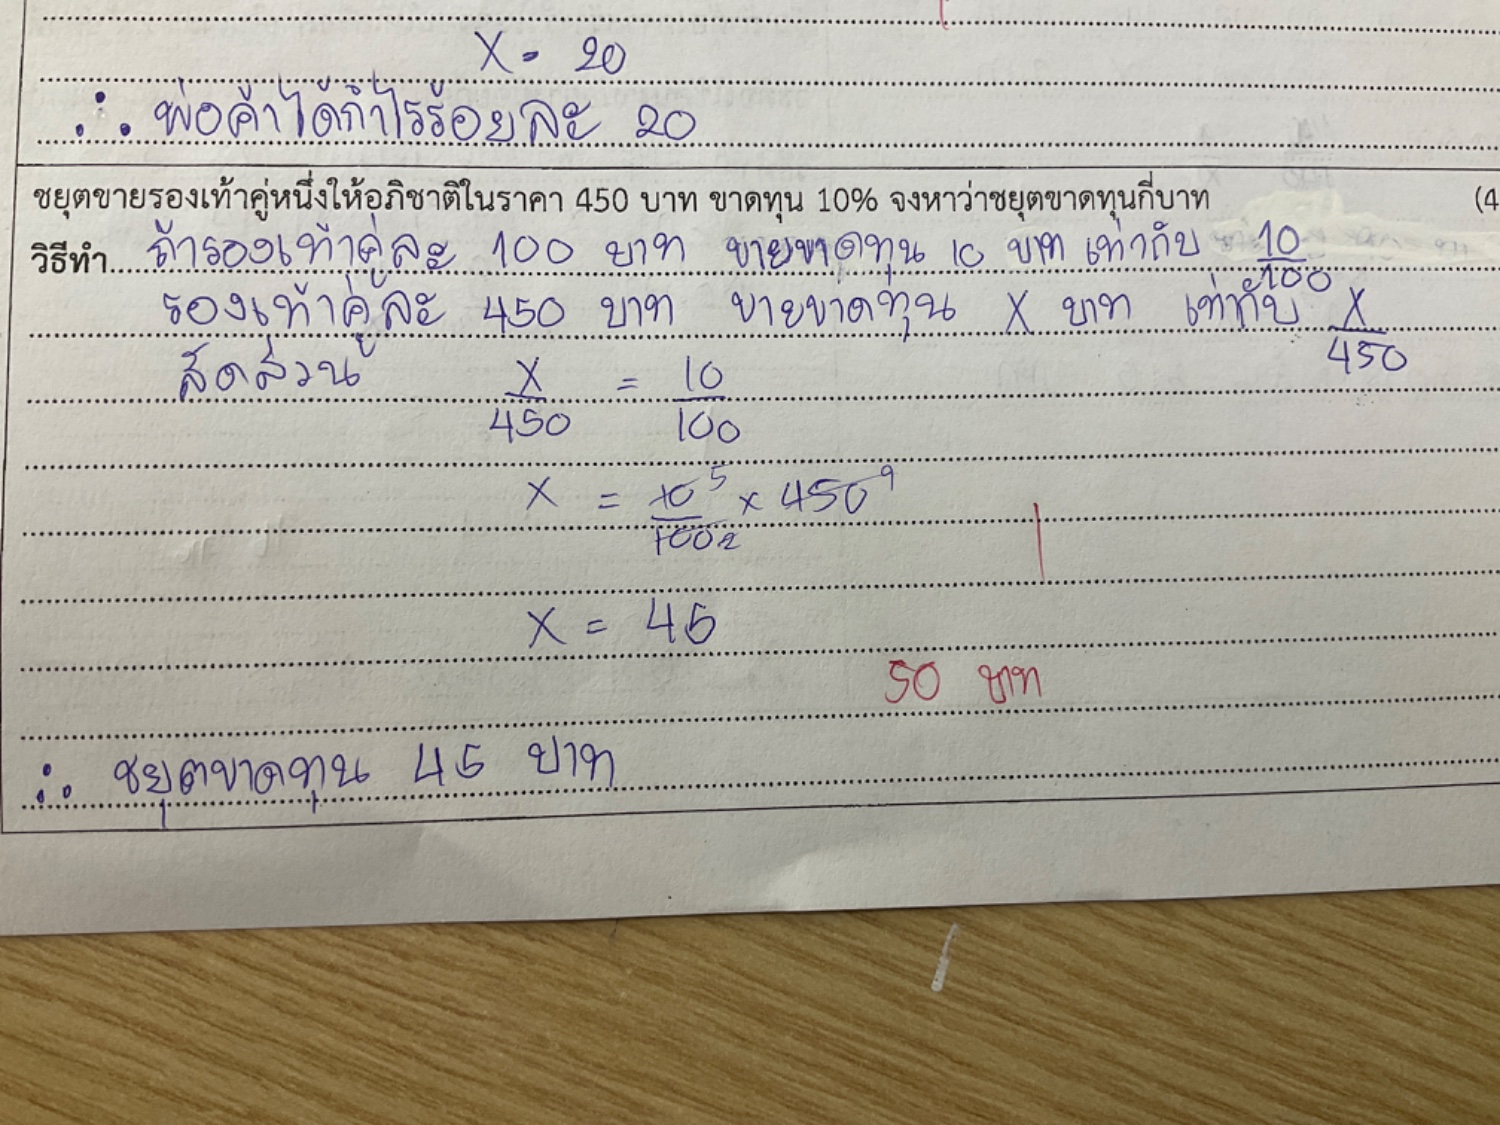 X = 20
∴ พ่อค้าได้กำไรร้อยละ 20
ชยุตขายรองเท้าคู่หนึ่งให้อภิชาติในราคา 450 บาท ขาดทุน 10% จงหาว่าชยุตขาดทุนกี่บาท (4
วิธีทำ ถ้ารองเท้าคู่ละ 100 บาท ขายขาดทุน 10 บาท เท่ากับ 10/100
รองเท้าคู่ละ 450 บาท ขายขาดทุน X บาท เท่ากับ X/450
สัดส่วน X/450 = 10/100
X = 10 5/100 2 × 450 9
X = 45
50 บาท
∴ ชยุตขาดทุน 45 บาท